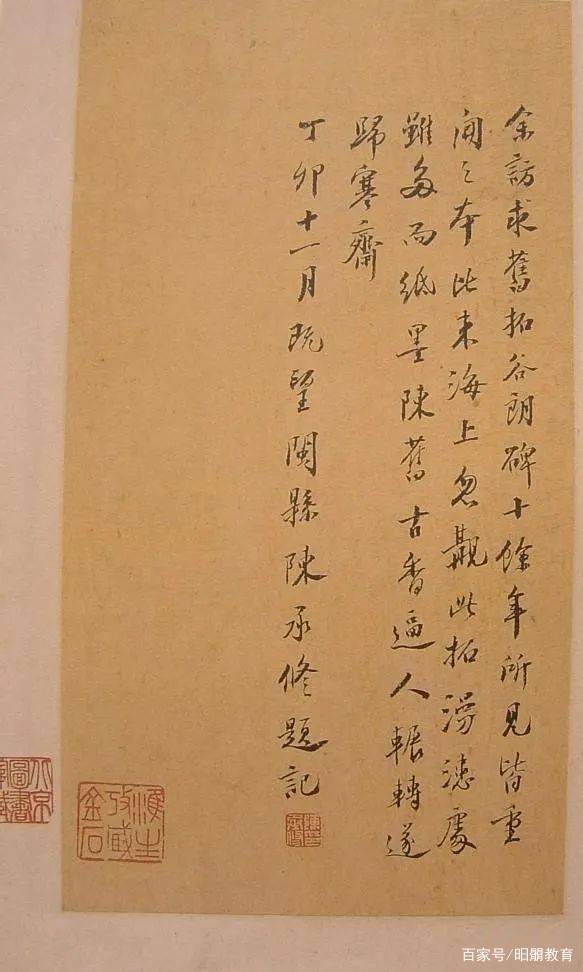 余訪求舊拓谷朗碑十餘年所見皆重
開之本比來海上忽覯此拓漫漶處
雖多而紙墨陳舊古香逼人輾轉遂
歸寒齋
丁卯十一月既望閩縣陳承修題記
淮生
攷臧
金石
北京
圖書
百家号/昍朋教育